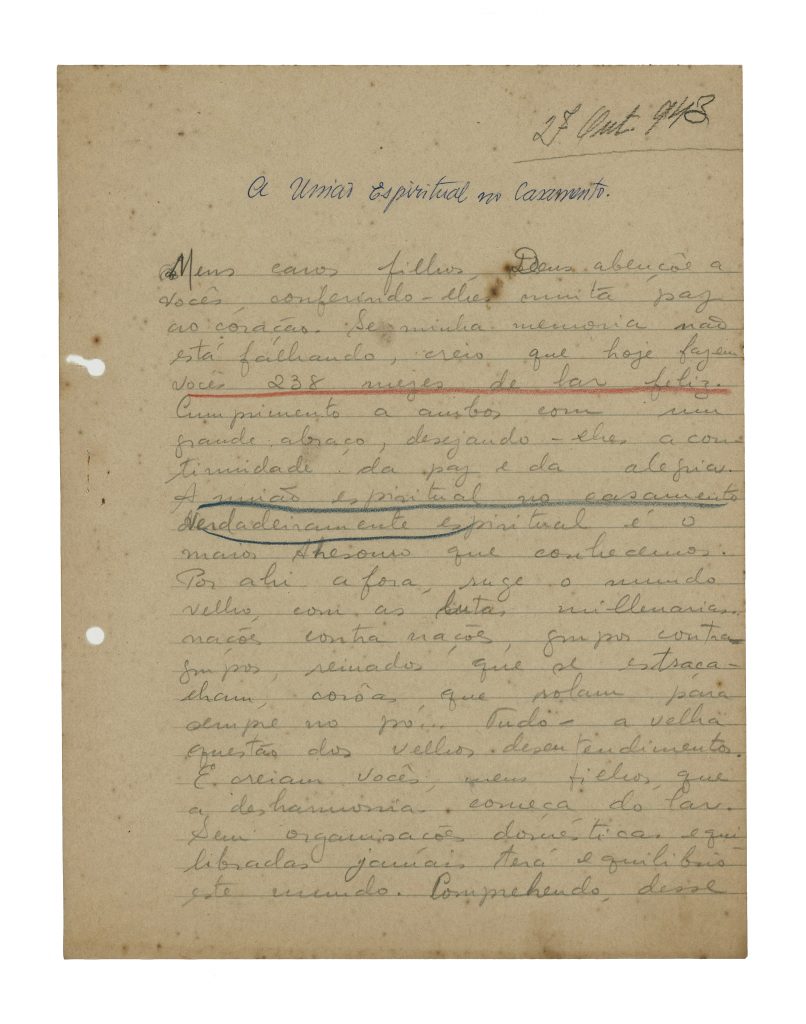 27 Out. 943
A União Espiritual no Casamento.
Meus caros filhos, Deus abençôe a
vocês, conferindo-lhes muita paz
ao coração. Se minha memoria não
está falhando, creio que hoje fazem
vocês 238 mezes de lar feliz.
Cumprimento a ambos com um
grande abraço, desejando-lhes a con-
tinuidade da paz e da alegria.
A união espiritual no casamento
verdadeiramente espiritual é o
maior thesouro que conhecemos.
Por ahi a fora, ruge o mundo
velho, com as lutas millenarias.
nações contra nações, grupos contra
grupos, reinados que se estraça-
lham, corôas que rolam para
sempre no pó... Tudo - a velha
questão dos velhos desentendimentos.
E creiam vocês, meus filhos, que
a desharmonia começa do lar.
Sem organisações domésticas equi
libradas jamais terá equilibrio
este mundo. Comprehendo, desse